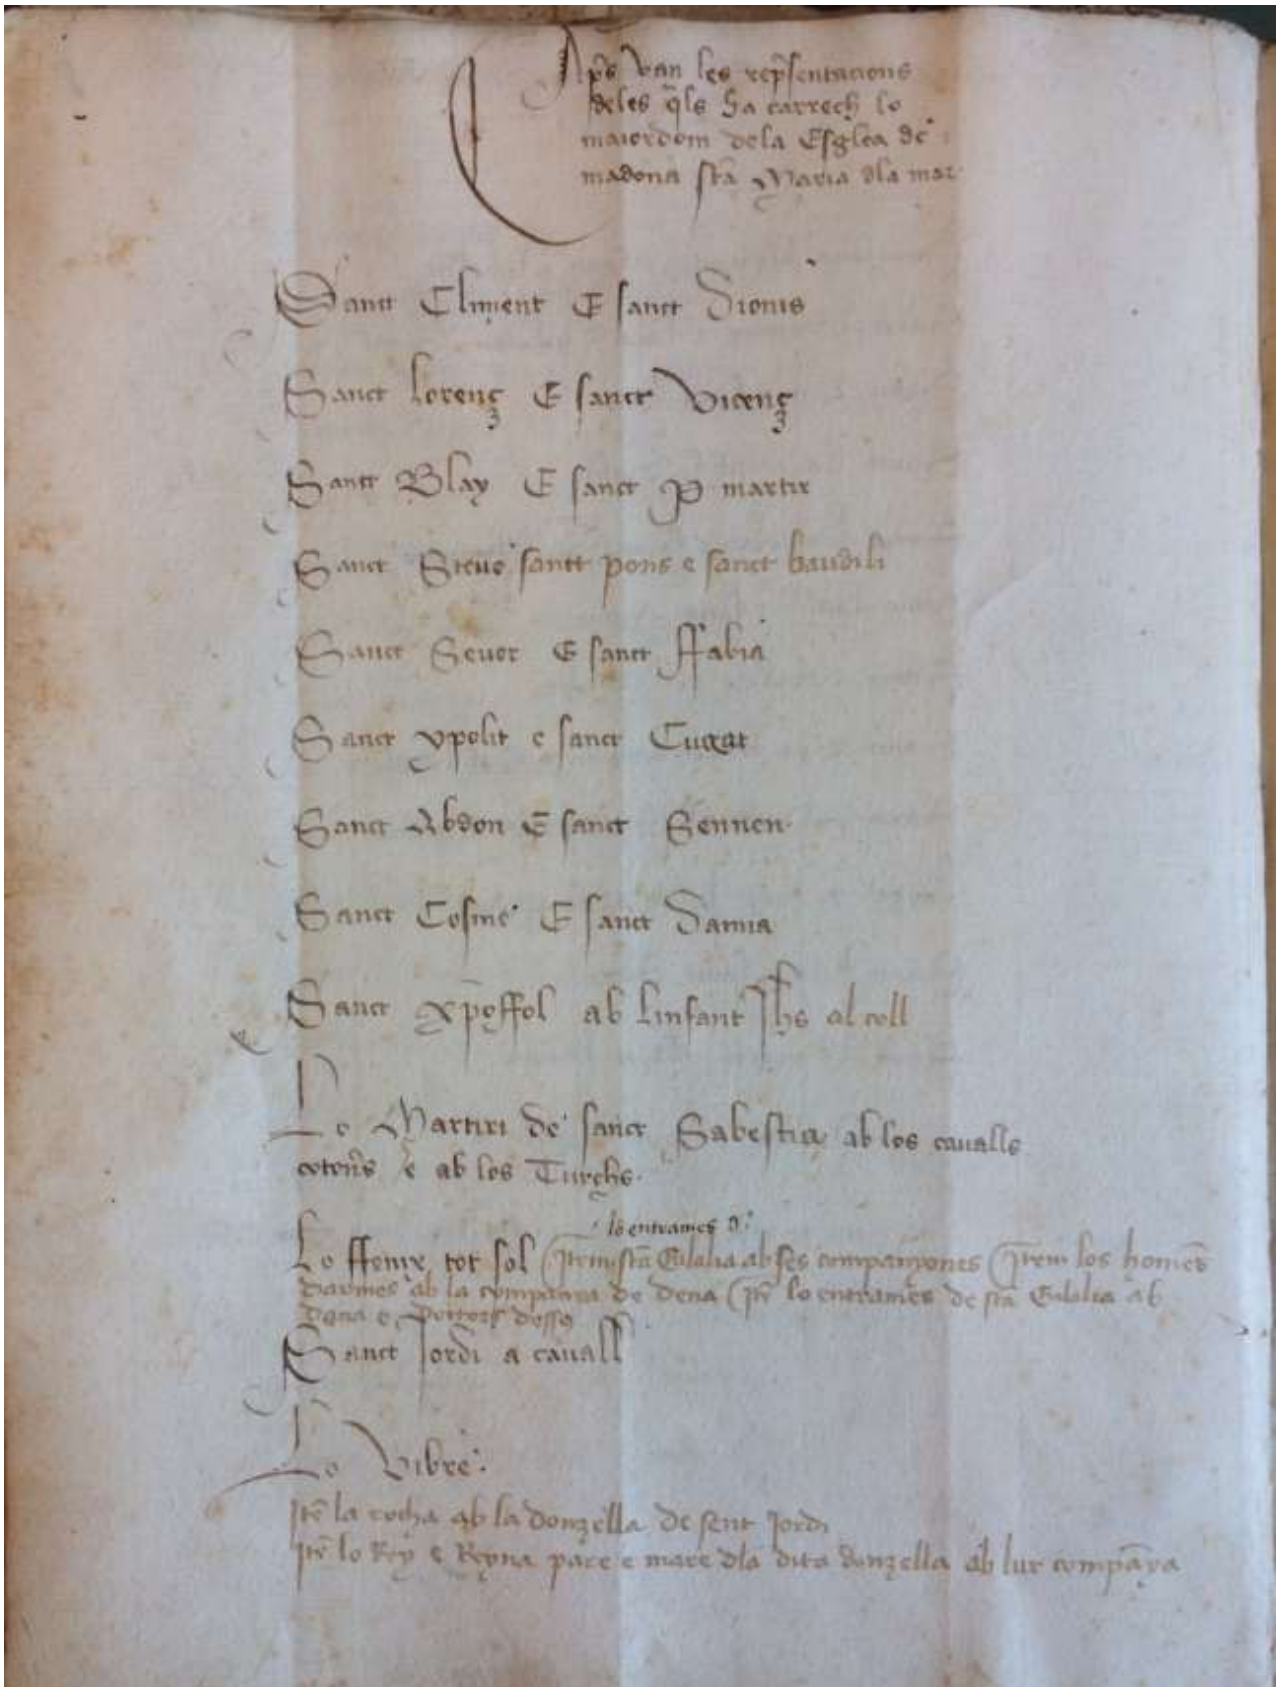 Apͤs van les rep̃sentacions
deles q̃ls ha carrech lo
maiordom dela Esglea de
madona sta Maria dla mar
Sanct Climent E sanct Dionis
Sanct lorenç E sanct Vicenç
Sanct Blay E sanct P martir
Sanct Steue sanct pons e sanct baudili
Sanct Seuer E sanct Ffabia
Sanct ypolit e sanct Cugat
Sanct Abdon E sanct Sennen
Sanct Cosme E sanct Damia
Sanct xp̃offol ab linfant Jhs al coll
Lo Martiri de sanct Sabestia ab los caualls
cotoñs e ab los Turchs
lo entrames d
Lo ffenix tot sol Item sta Eulalia ab ses companyones Item los homẽs
darmes ab la companya de lo entrames de sta Eulalia ab
e
Sanct Jordi a cauall
Lo Vibre
Itẽ la rocha ab la donzella de sent Jordi
Itẽ lo Rey e Reyna pare e mare dla dita donzella ab lur compãya